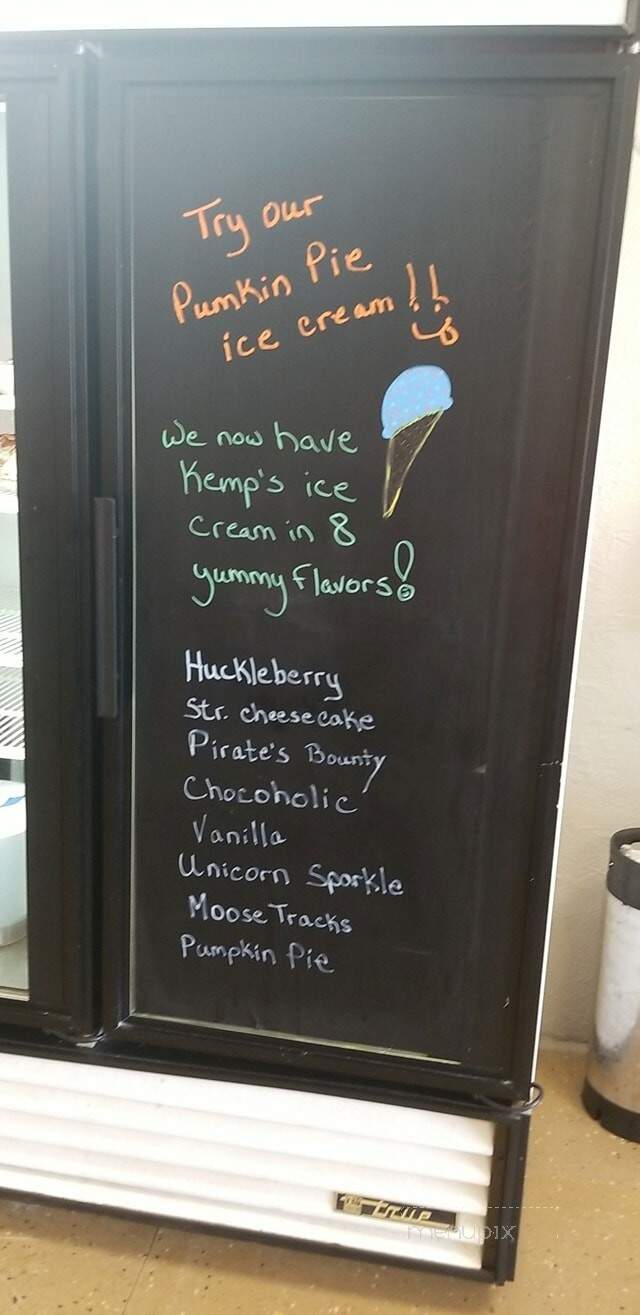 Try our
Pumkin Pie
ice cream!!
We now have
Kemp's ice
cream in 8
yummy flavors!
Huckleberry
Str. cheesecake
Pirate's Bounty
Chocoholic
Vanilla
Unicorn Sparkle
Moose Tracks
Pumpkin Pie
True
menupix